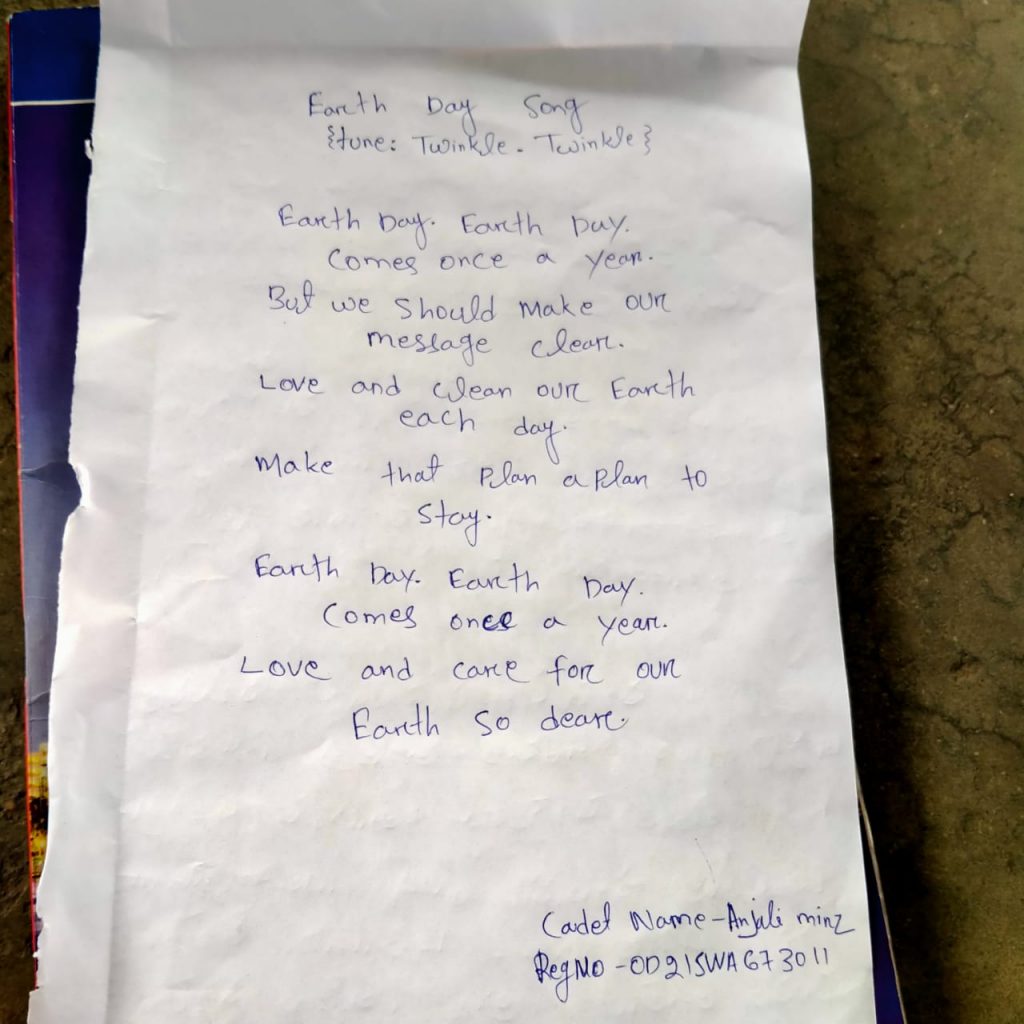 Earth Day Song
{tune: Twinkle. Twinkle}
Earth Day. Earth Day.
Comes once a year.
But we should make our
message clear.
Love and clean our Earth
each day.
Make that Plan a Plan to
Stay.
Earth Day. Earth Day.
Comes once a year.
Love and care for our
Earth so dear.
Cadet Name-Anjali minz
Reg No-OD21SWA673011